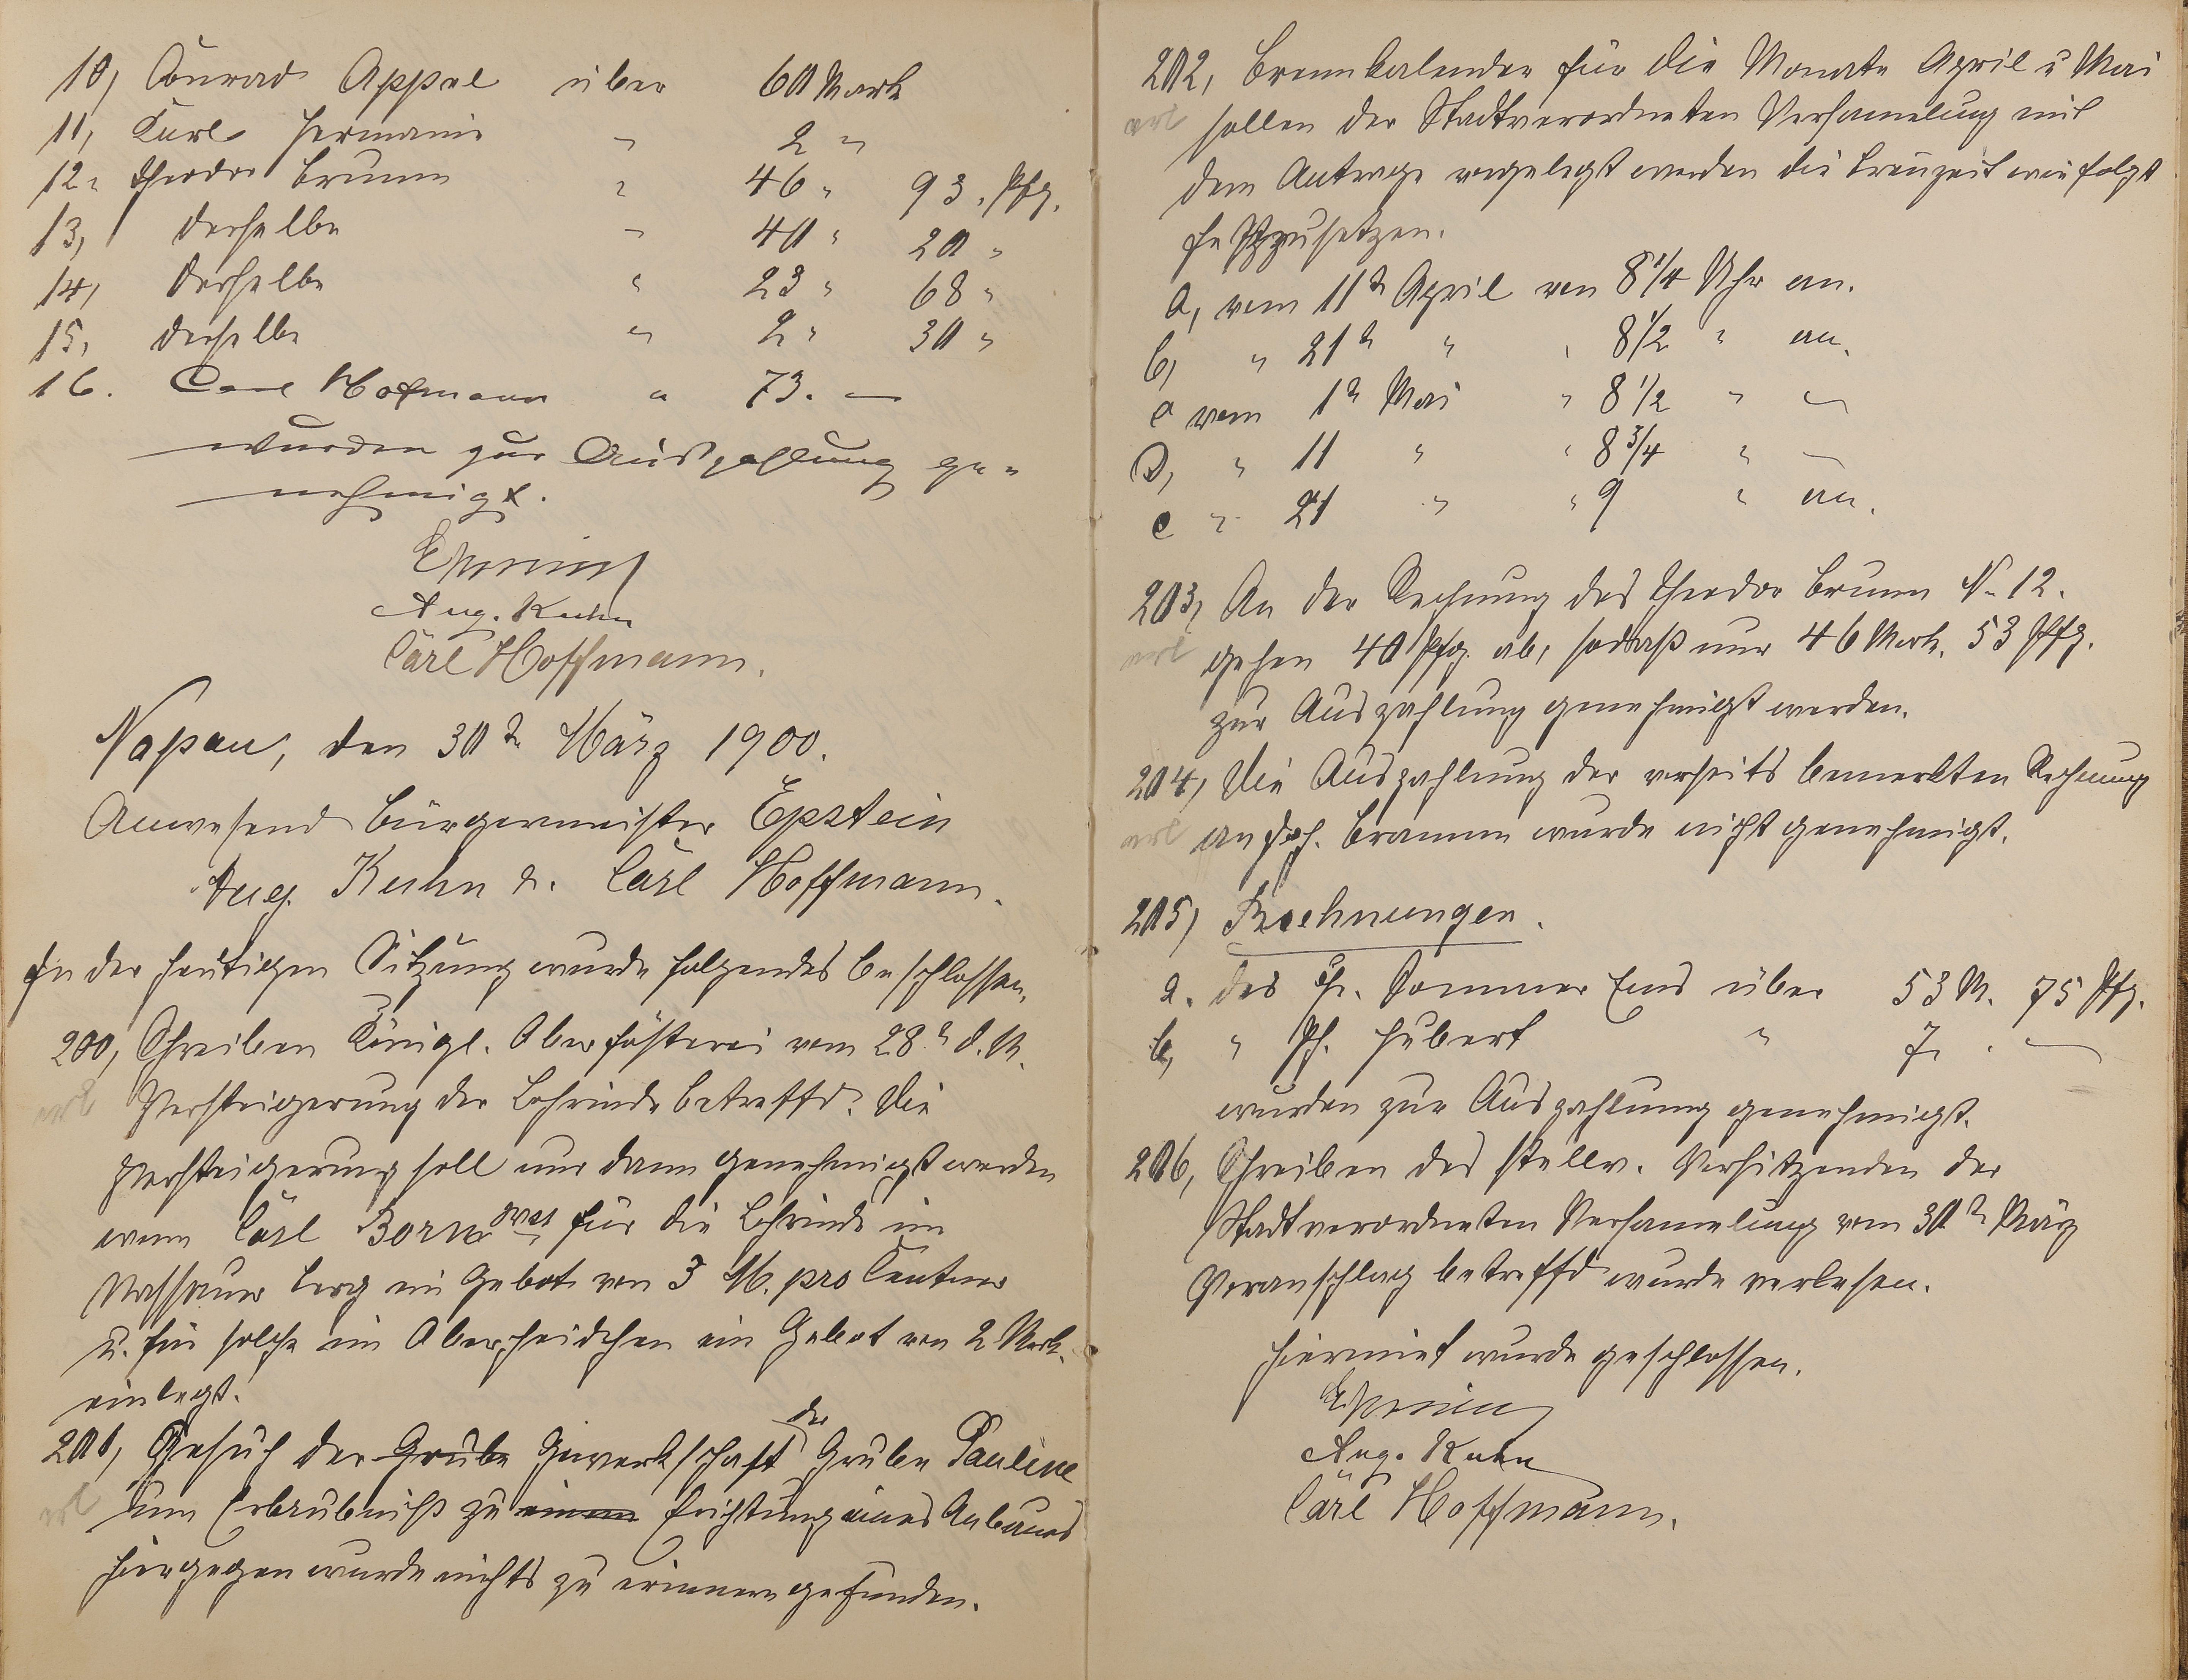 10, Conrad Appel über 60 Mark
11, Karl Hermann " 2 "
12. Theodor Brumm " 46 " 93 Pfg.
13, derselbe " 40 " 20 "
14, derselbe " 23 " 68 "
15, derselbe " 2 " 30 "
16. Carl Hofmann " 73. —
wurden zur Auszahlung ge-
nehmigt.
Epstein
Aug. Kuhn
Carl Hoffmann.
Naßau, den 30t März 1900.
Anwesend Bürgermeister Epstein
Aug. Kuhn u. Carl Hoffmann.
In der heutigen Sitzung wurde folgendes beschlossen,
200, Schreiben Königl. Oberförsterei vom 28t d. M.
erl Versteigerung der Lohrinde betreffd. Die
Versteigerung soll nur dann genehmigt werden
wenn Carl Born für die Lohrinde im
Nassauer Berg ein Gebot von 3 M. pro Centner
u. für solche im Oberheidchen ein Gebot von 2 Mark.
einlegt.
201, Gesuch der Grube Gewerkschaft der Grube Pauline
erl um Erlaubniß zu einem Errichtung eines Anbaues
hiergegen wurde nichts zu erinnern gefunden.
202, Brennkalender für die Monate April u Mai
erl sollen der Stadtverordneten Versamelung mit
dem Antrage vorgelegt werden die Brenzeit wie folgt
festzusetzen.
a, vom 11t April von 8 1/4 Uhr an.
b, " 21t " " 8 1/2 " an.
c vom 1t Mai " 8 1/2 " "
d, " 11 " " 8 3/4 " —
e " 21 " " 9 " an.
203, An der Rechnung des Theodor Brumm N. 12.
erl gehen 40 Pfg. ab, sodaß nur 46 Mark. 53 Pfg.
zur Auszahlung genehmigt werden.
204, Die Auszahlung der verseits bemerkten Rechnung
erl an Jos. Bramm wurde nicht genehmigt.
205, Rechnungen.
a. des Chr. Sommer Ems über 53 M. 75 Pfg.
b, " Ph. Hubert " 7. . —
wurden zur Auszahlung genehmigt.
206, Schreiben des stellv. Vorsitzenden der
Stadtverordneten Versamelung vom 30t März
Voranschlag betreffd wurde verlesen.
Hiermit wurde geschlossen.
Epstein
Aug. Kuhn
Carl Hoffmann.